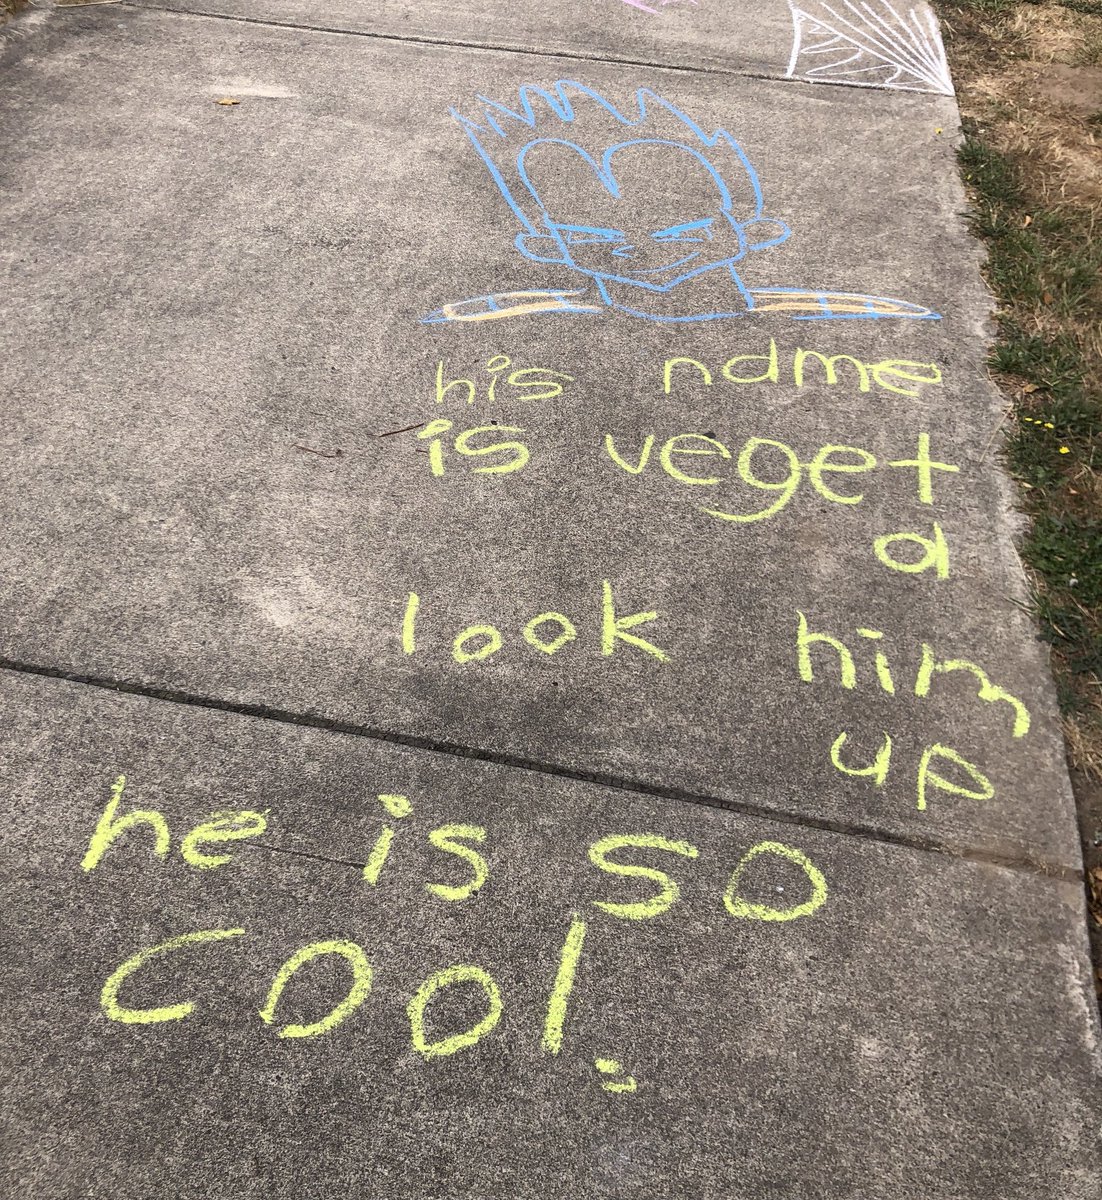 his name
is veget
a
look him
up
he is so
cool.